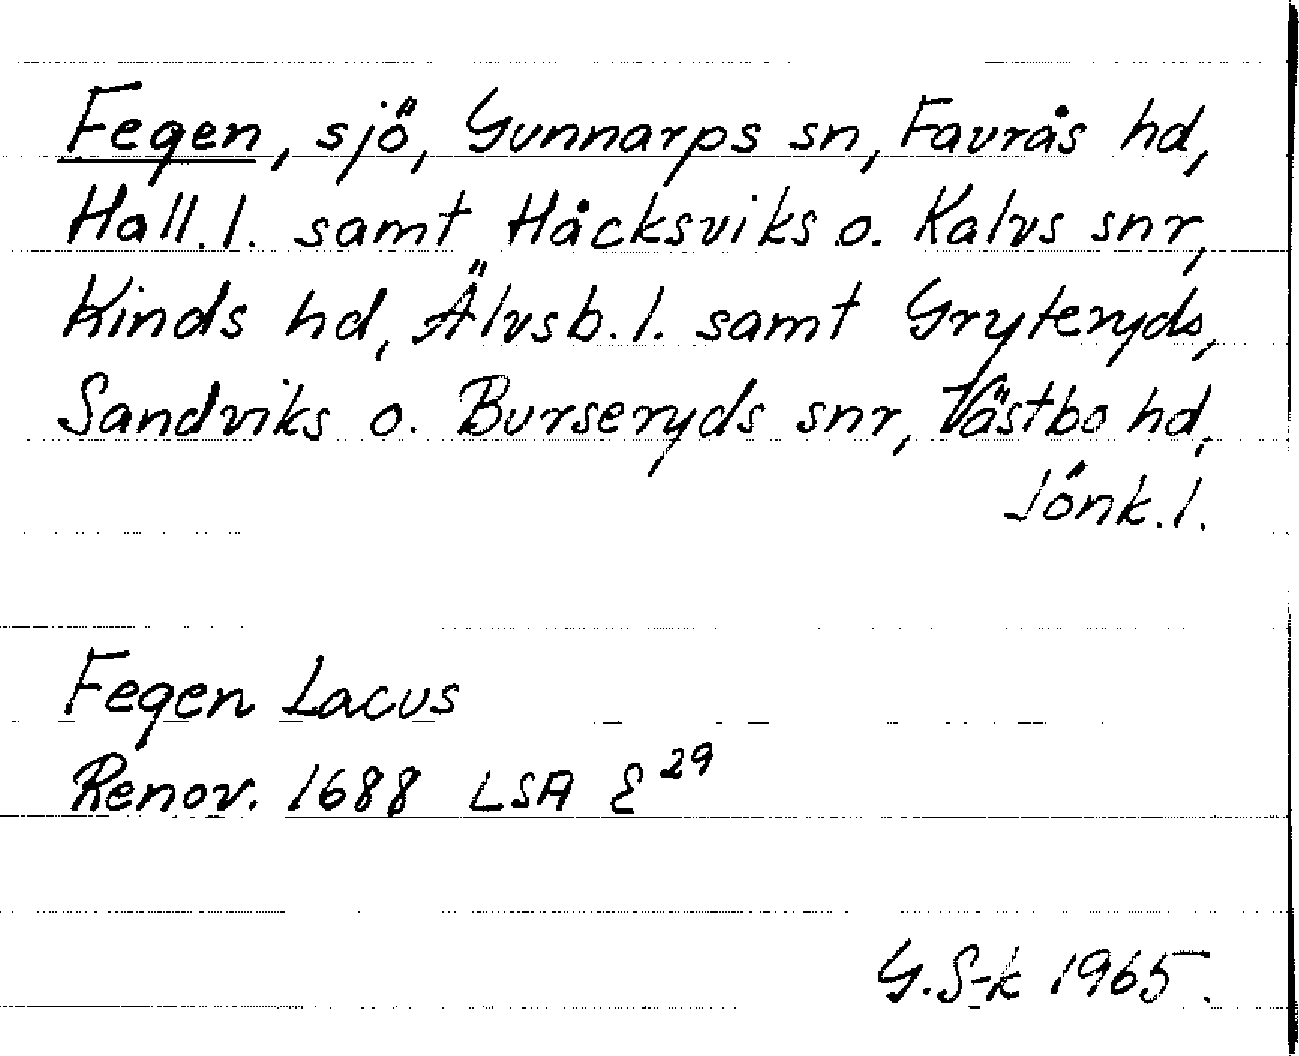 Fegen, sjö, Gunnarps sn, Faurås hd,
Hall.l. samt Håcksviks o. Kalvs snr,
Kinds hd, Älvsb.l. samt Gryteryds,
Sandviks o. Burseryds snr, Västbo hd,
Jönk.l.
Fegen Lacus
Renov. 1688 LSA E 29
G.S-k 1965.